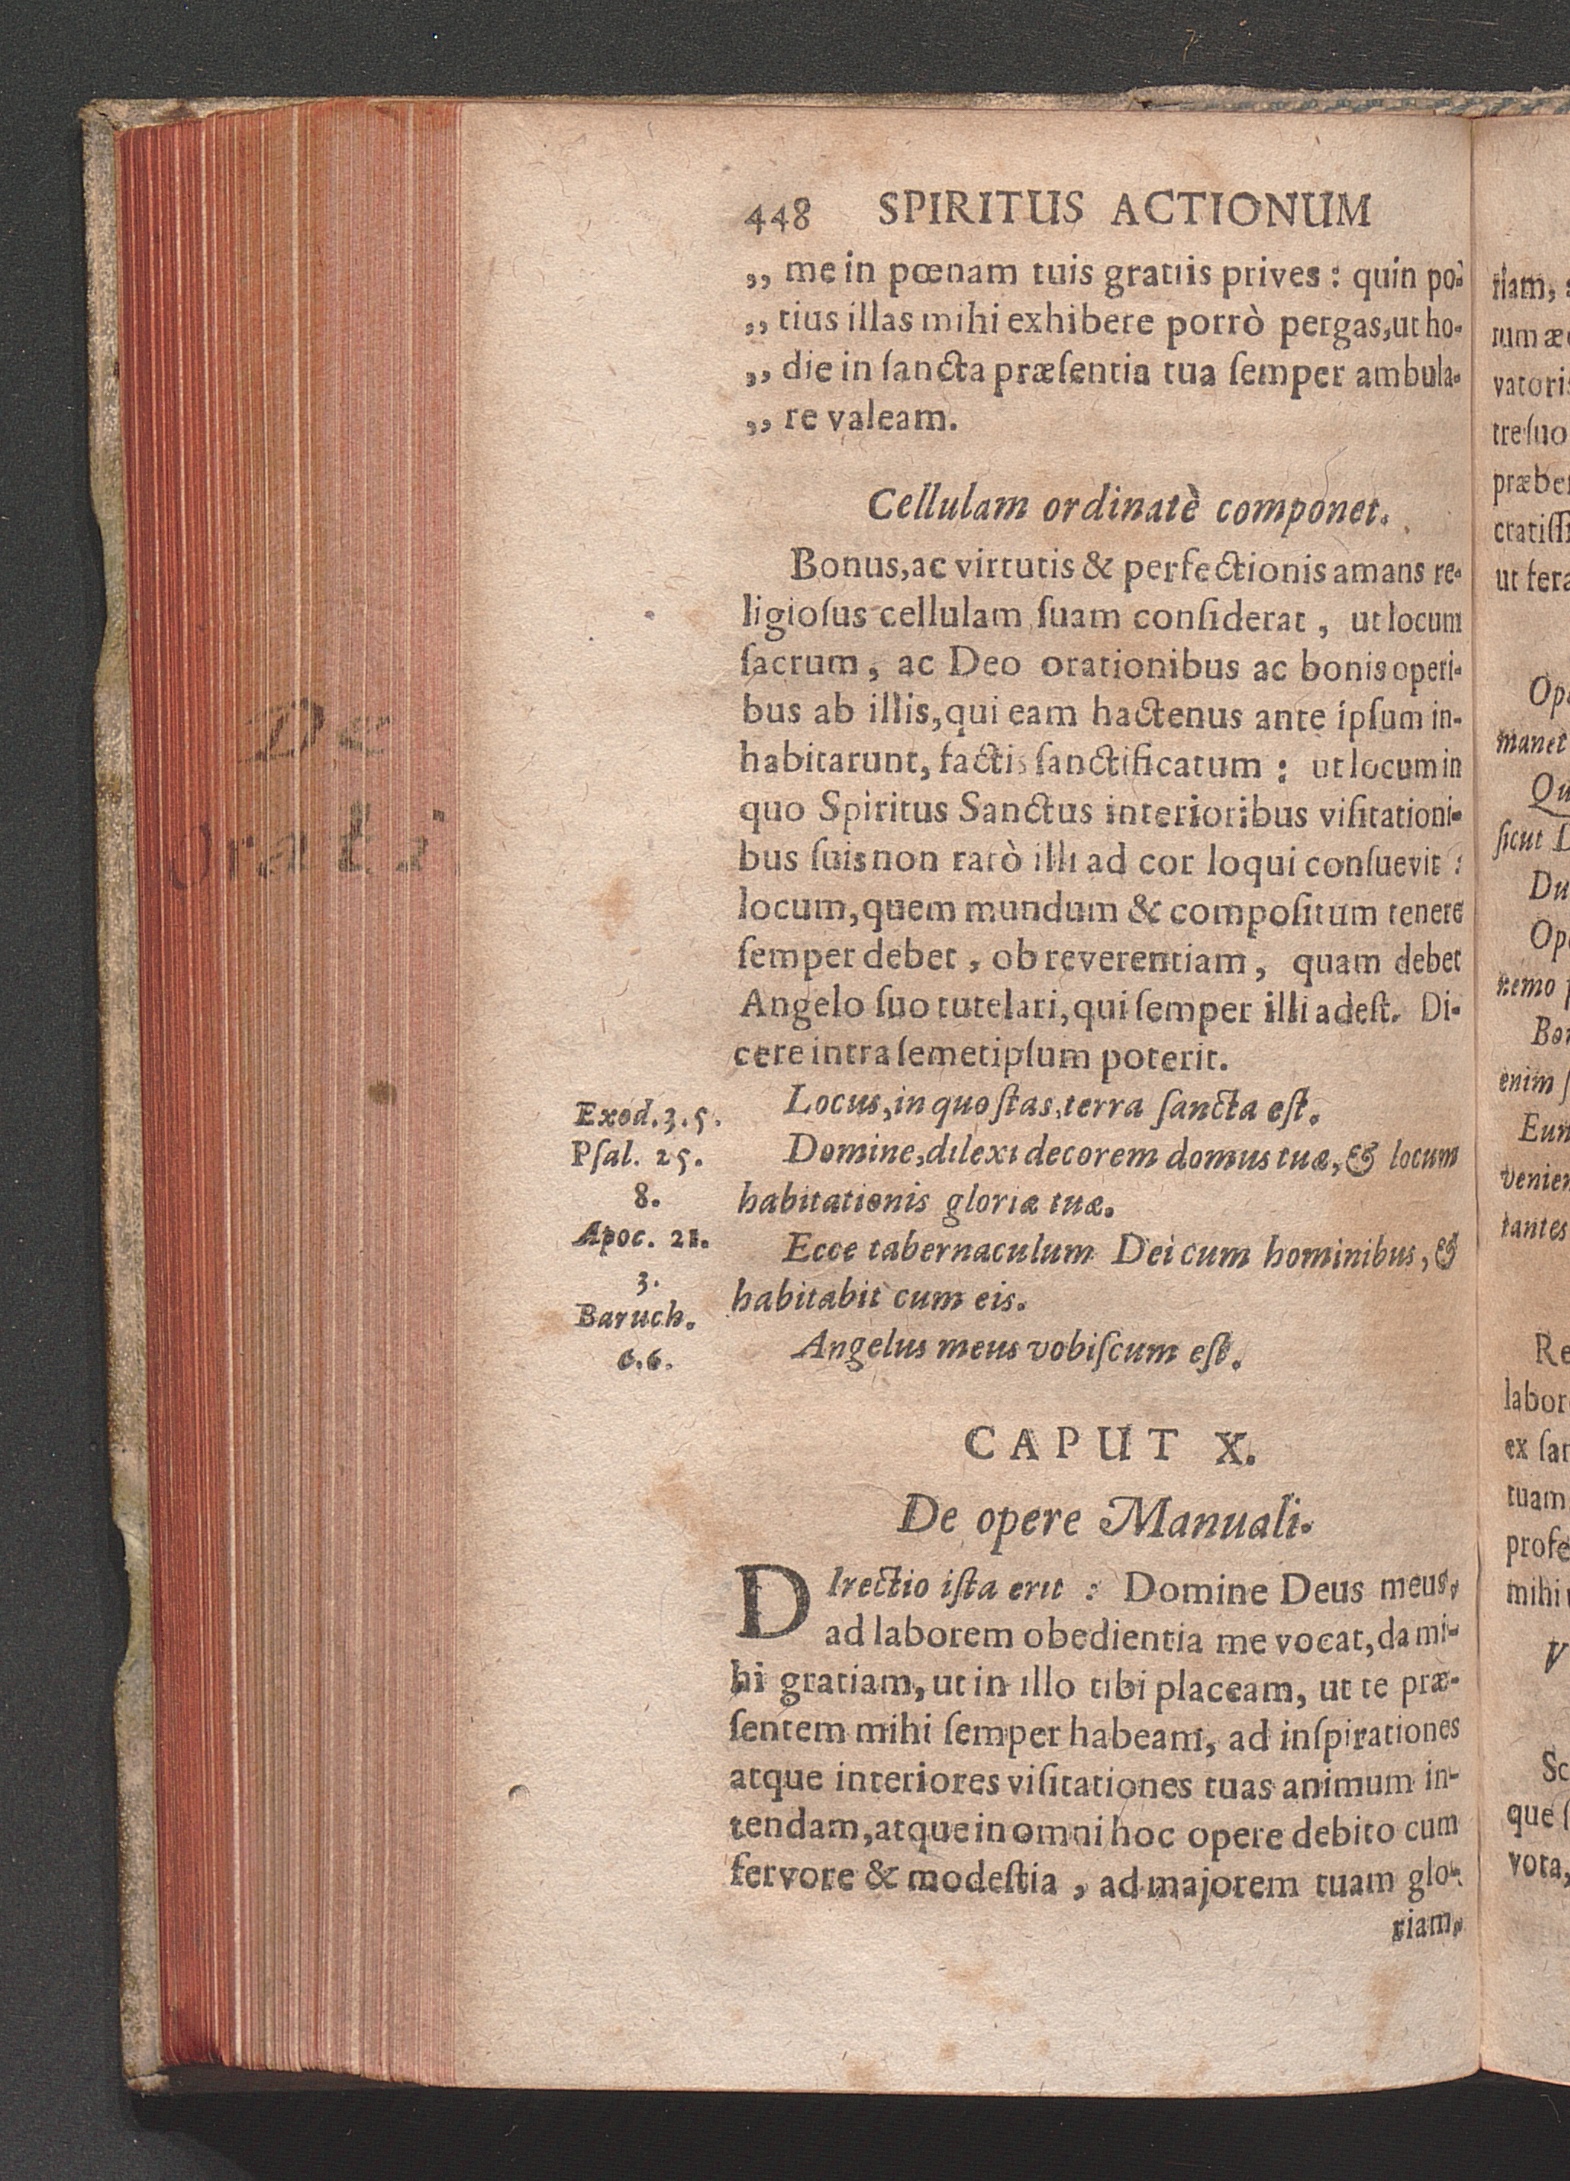 448 SPIRITUS ACTIONUM
„ me in pœnam tuis gratiis prives : quin po-
„ tius illas mihi exhibere porrò pergas, ut ho-
„ die in ſancta præſentia tua ſemper ambula-
„ re valeam.
Cellulam ordinatè componet.
Bonus, ac virtutis & perfectionis amans re-
ligioſus cellulam ſuam conſiderat, ut locum
ſacrum, ac Deo orationibus ac bonis operi-
bus ab illis, qui eam hactenus ante ipſum in-
habitarunt, factis ſanctificatum : ut locum in
quo Spiritus Sanctus interioribus viſitationi-
bus ſuis non rarò illi ad cor loqui conſuevit :
locum, quem mundum & compoſitum tenere
ſemper debet, ob reverentiam, quam debet
Angelo ſuo tutelari, qui ſemper illi adeſt. Di-
cere intra ſemetipſum poterit.
Exod. 3. 5.
Locus, in quo ſtas, terra ſancta eſt.
Pſal. 25.
8.
Domine, dilexi decorem domus tuæ, & locum
habitationis gloriæ tuæ.
Apoc. 21.
3.
Ecce tabernaculum Dei cum hominibus, &
habitabit cum eis.
Baruch.
6. 6.
Angelus meus vobiſcum eſt.
CAPUT X.
De opere Manuali.
DIrectio iſta erit : Domine Deus meus,
ad laborem obedientia me vocat, da mi-
hi gratiam, ut in illo tibi placeam, ut te præ-
ſentem mihi ſemper habeam, ad inſpirationes
atque interiores viſitationes tuas animum in-
tendam, atque in omni hoc opere debito cum
fervore & modeſtia, ad majorem tuam glo-
riam,
De
Orati
riam,
rum
vatoris
tre ſuo
ut
manet
ſicut
nemo
enim
tantes
labor
ex
tuam
mihi
que
vota,